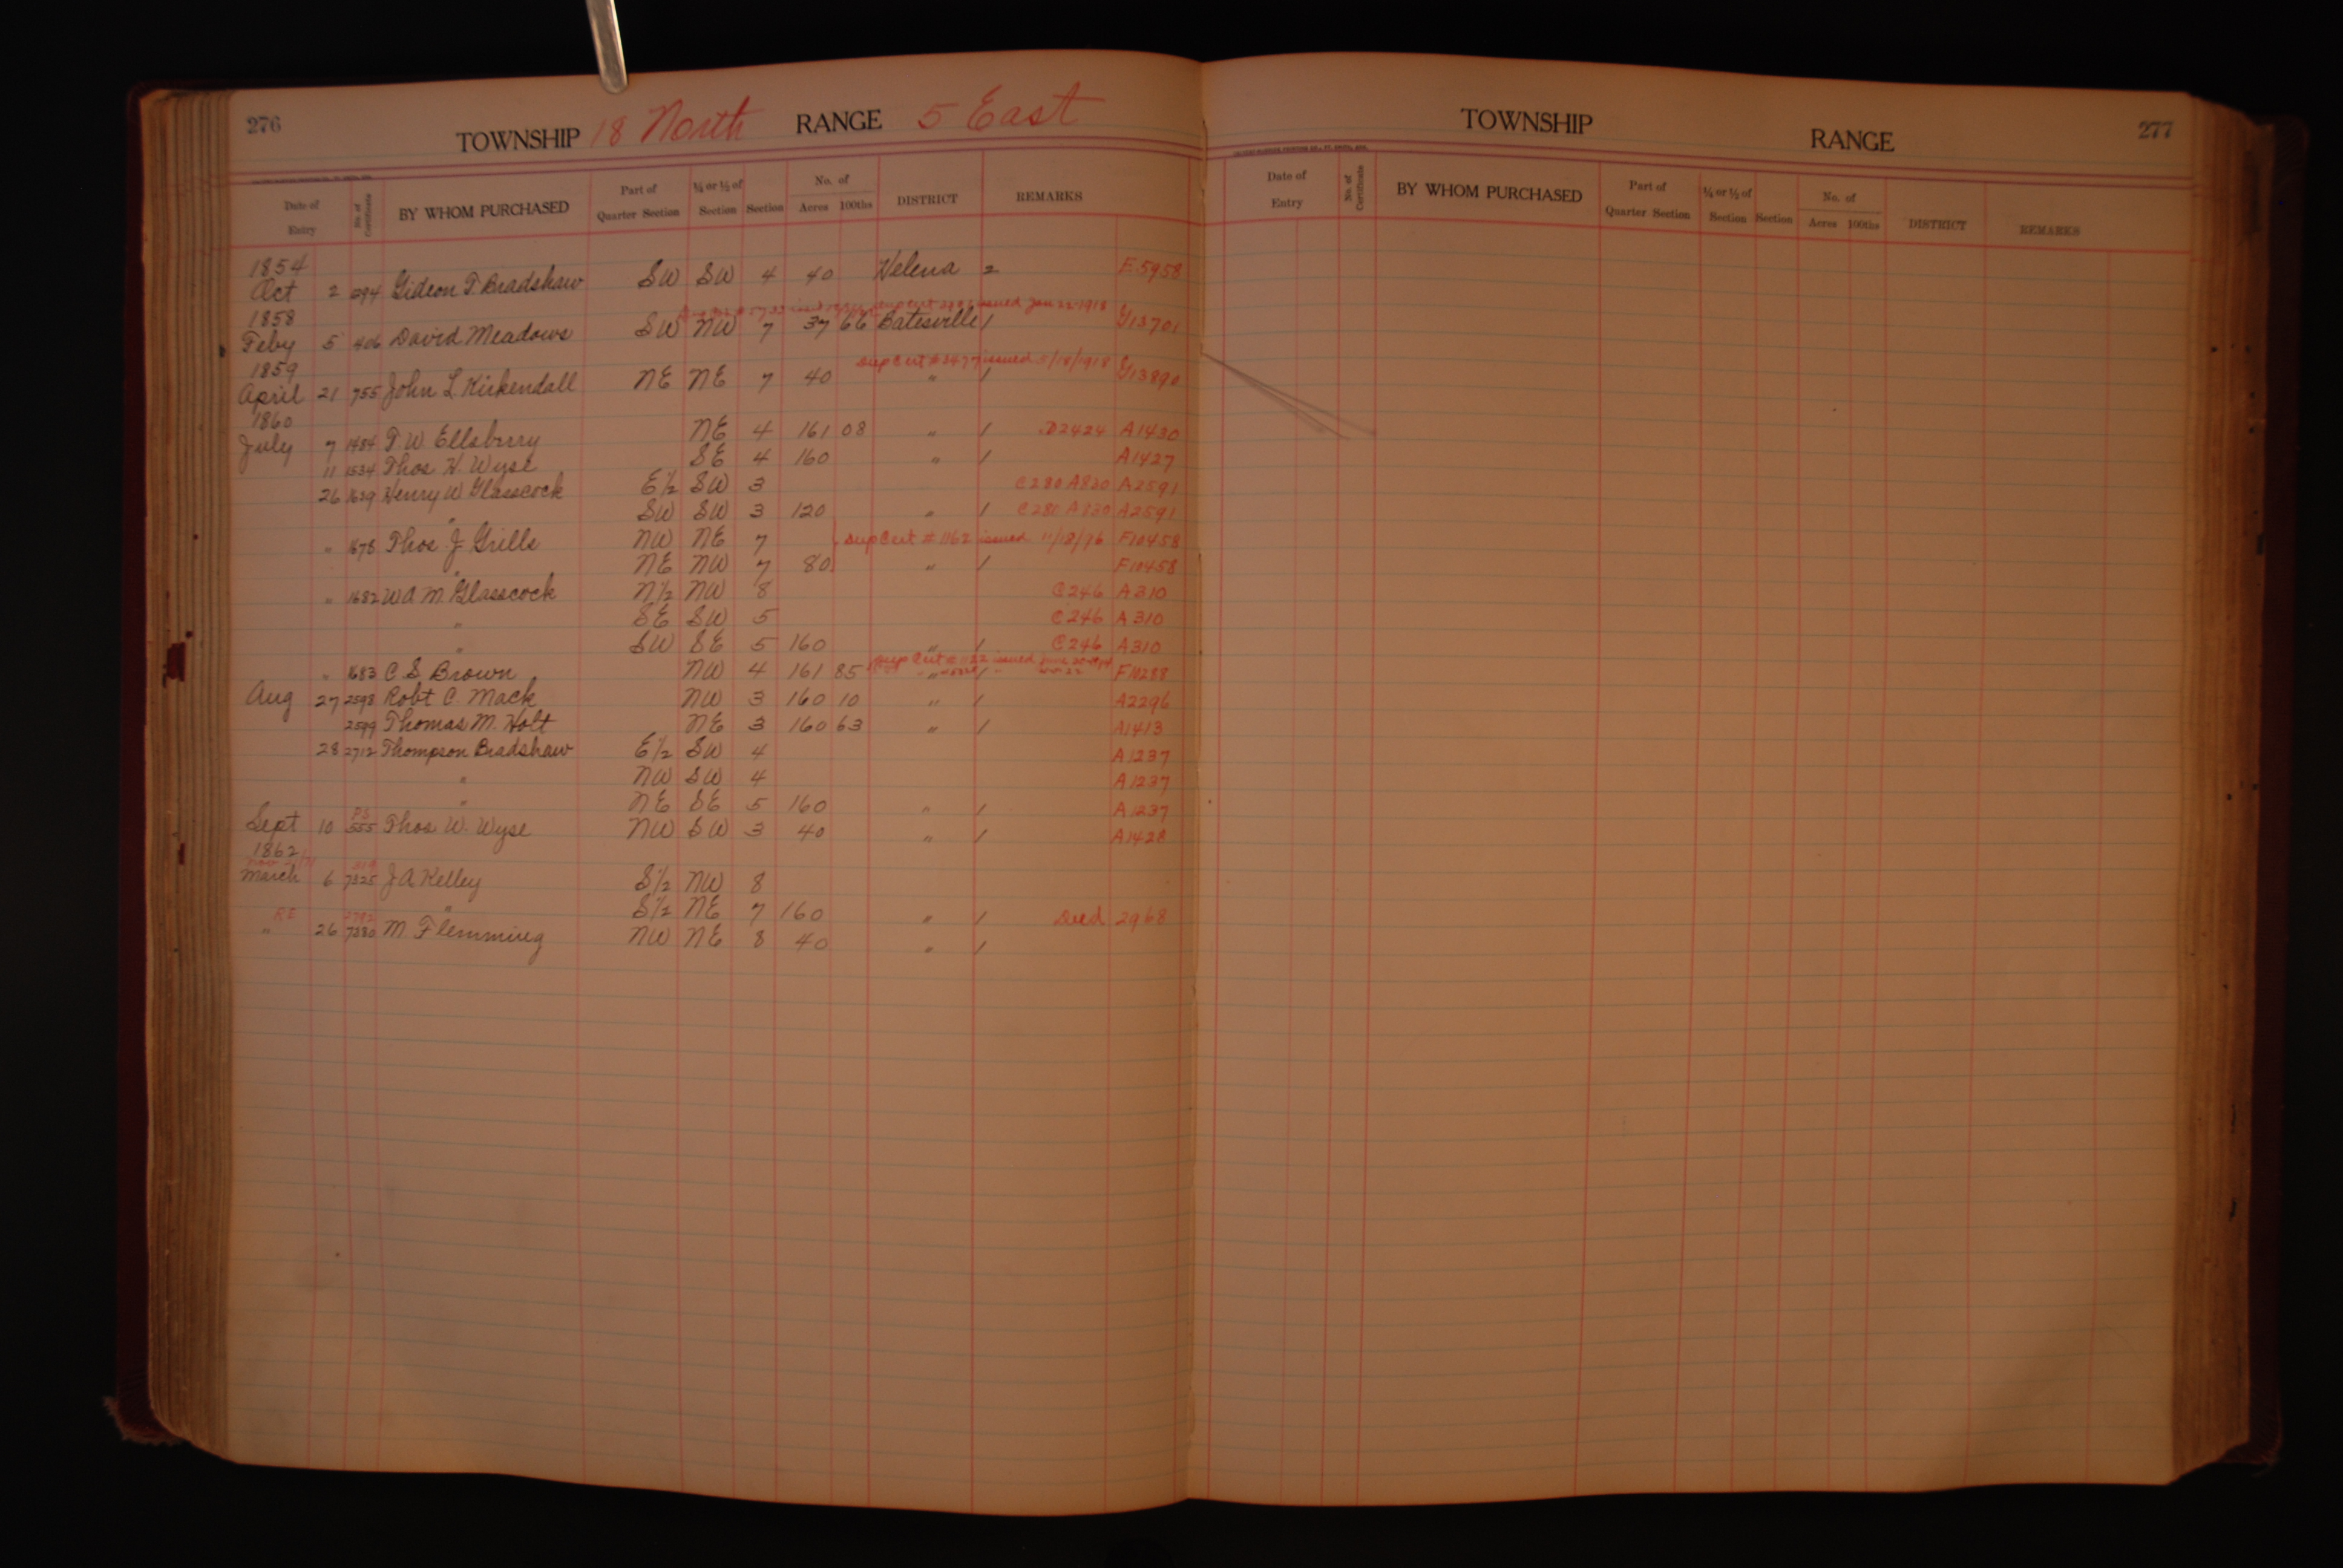 276
TOWNSHIP 18 North RANGE 5 East
Date of Entry No. of Certificate BY WHOM PURCHASED Part of Quarter Section ¼ or ½ of Section Section No. of Acres 100ths DISTRICT REMARKS
1854
Oct 2 Gideon T. Bradshaw SW SW 4 40 Helena 2 F.5958
issued Jan 22-1918
1858
Feby 5 406 David Meadows SW NW 7 37 66 Batesville 1 G13701
Sup Cert #3477 issued 5/18/1918
1859
April 21 755 John L Kirkendall NE NE 7 40 " 1 G13890
1860
July 7 1484 T. W Ellsberry NE 4 161 08 " 1 D2424 A1430
11 1534 Thos. H. Wyse SE 4 160 " 1 A1427
26 1629 Henry W Glasscock E½ SW 3 C280 A830 A2591
" SW SW 3 120 " 1 C280 A830 A2591
" 1678 Thos J Grills NW NE 7 Sup Cert # 1162 issued 11/18/76 F10458
" NE NW 7 80 " 1 F10458
" 1682 W A M. Glasscock N½ NW 8 C246 A310
" SE SW 5 C246 A310
" SW SE 5 160 " 1 C246 A310
Sup Cert # issued
" 1683 C. S. Brown NW 4 161 85 " 1 F10288
Aug 27 2598 Robt C. Mack NW 3 160 10 " 1 A2296
2599 Thomas M. Holt NE 3 160 63 " 1 A1413
28 2712 Thompson Bradshaw E½ SW 4 A1237
" NW SW 4 A1237
" NE SE 5 160 " 1 A1237
PS
Sept 10 555 Thos W. Wyse NW SW 3 40 " 1 A1428
1862
March 6 7325 J A Kelley S½ NW 8
" S½ NE 7 160 " 1 Deed 2968
RE
" 26 7380 M. Flemming NW NE 8 40 " 1
277
TOWNSHIP RANGE
Date of Entry No. of Certificate BY WHOM PURCHASED Part of Quarter Section ¼ or ½ of Section Section No. of Acres 100ths DISTRICT REMARKS